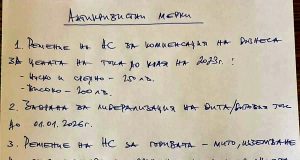 Антикризистни мерки
1. Решение на НС за компенсация на бизнеса
за цената на тока до края на 2023г.:
- ниско и средно - 250 лв.
- високо - 200 лв.
2. за либерализация на бита/битовия ток
до 01.01.2026г.
3. Решение на НС за горивата - мито,